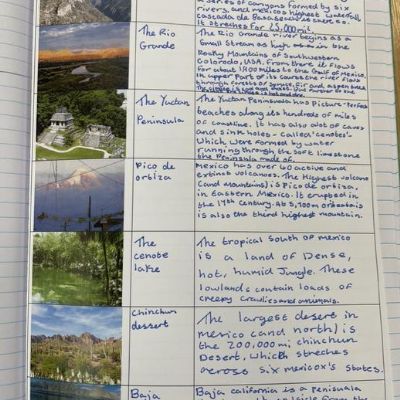 a series of canyons formed by six
rivers, and mexicos highest waterfall,
cascada de
It streches for 25,000 mil
The Rio
Grande
The Rio Grande river begins as a
Small Stream as high as in the
Rocky Mountains of Southwestern
Colorado, USA. From there it flows
For about 1900 miles to the Gulf of Mexico.
In upper part of its course the river flows
through forests of spruce, fir and aspen trees
The Yuctan
Peninsula
The Yuctan Peninsula has Picture-Perfect
beaches along its hundreds of miles
of coastline. It has also lot of caves
and sink holes - called 'cenotes'-
Which were formed by water
running through the soft limestone
the Peninsula made of.
Pico de
ortiza
Mexico has over 40 active and
extinct volcanos. The Highest volcano
(and mountains) is Pico de ortiza,
in Eastern Mexico. It erupted in
the 19th century. At 5,700m
is also the third highest mountain.
The
cenote
lake
The tropical South of mexico
is a land of Dense,
hot, humid Jungle. These
lowlands contain loads of
creepy crawlies and animals.
Chinchun
dessert
The largest desert in
mexico (and north) is
the 200,000 mi chinchun
Desert, Which streches
across six mexicox's states.
Baja
Baja california is a penisuala